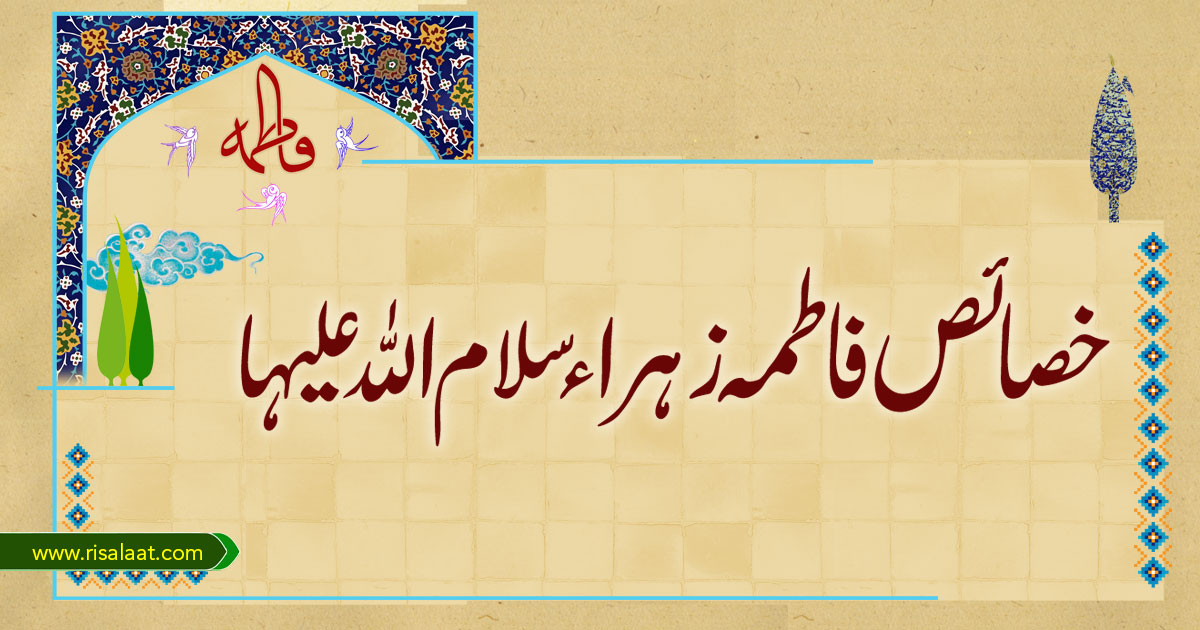 فاطمه
خصائص فاطمہ زہراء سلام اللہ علیہا
www.risalaat.com